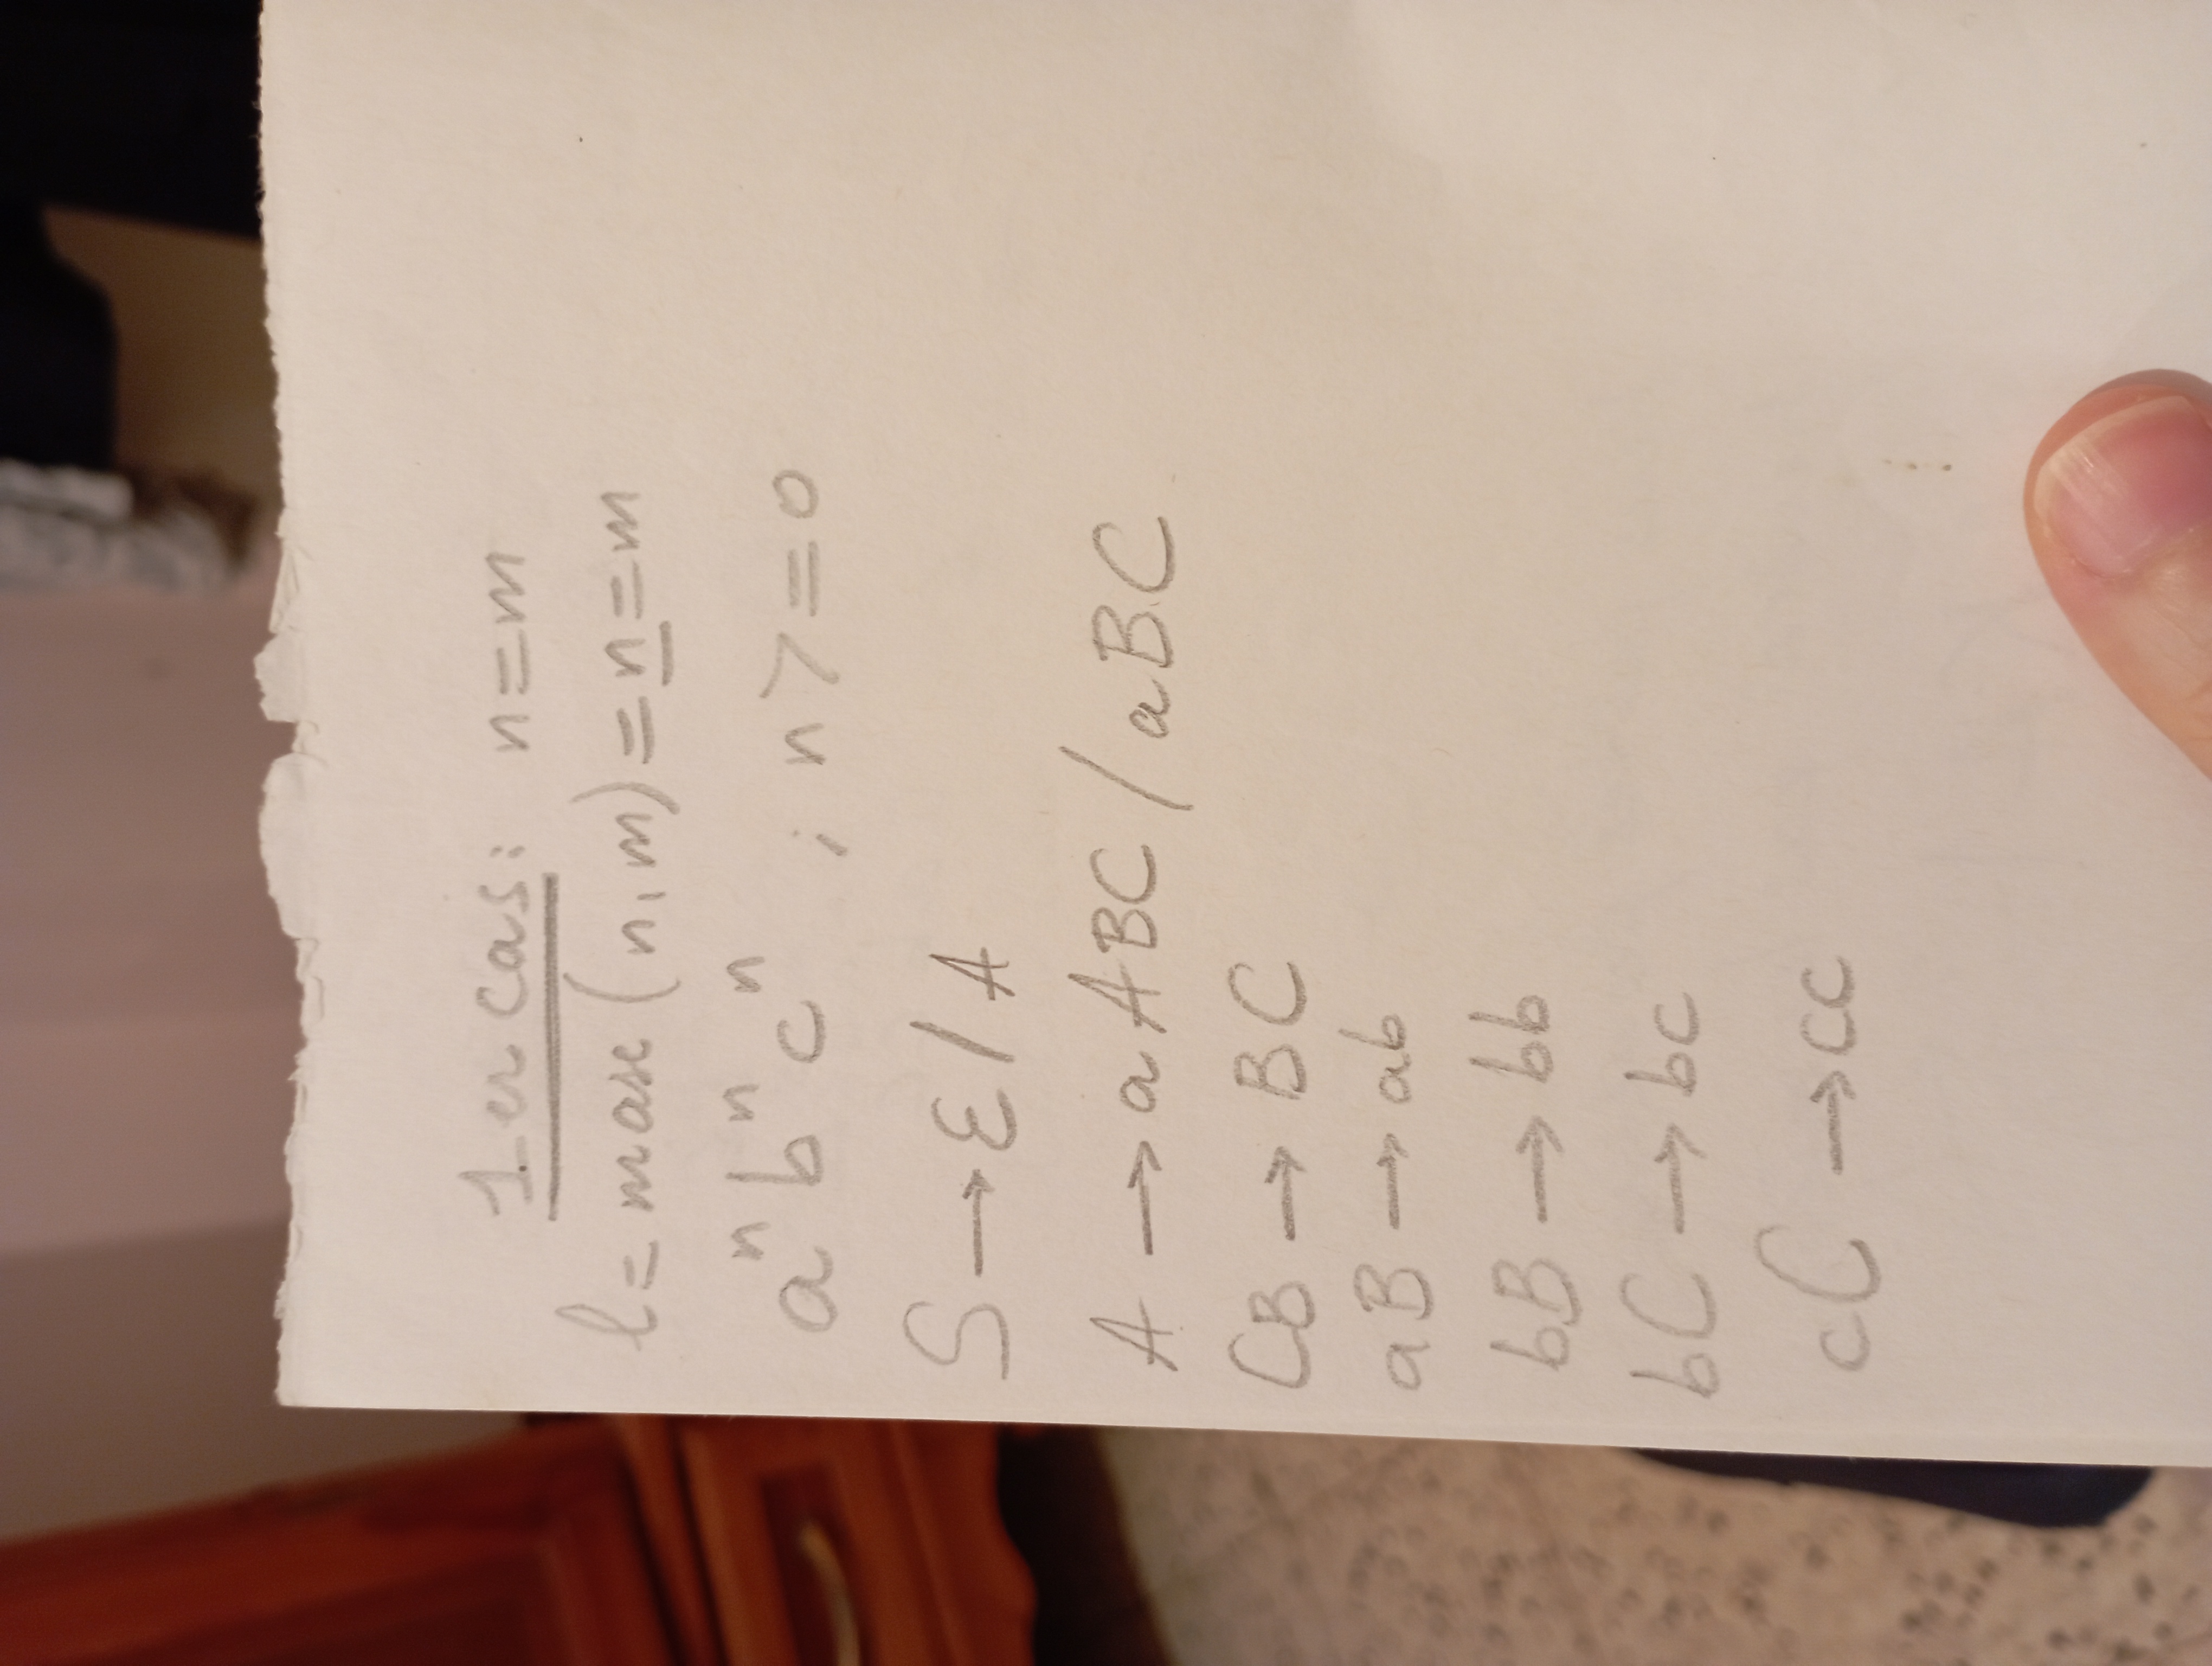 1er cas: n=m
l = max (n,m) = n = m
aⁿ bⁿ cⁿ ; n >= 0
S → ε / A
A → aABC / aBC
CB → BC
aB → ab
bB → bb
bC → bc
cC → cc